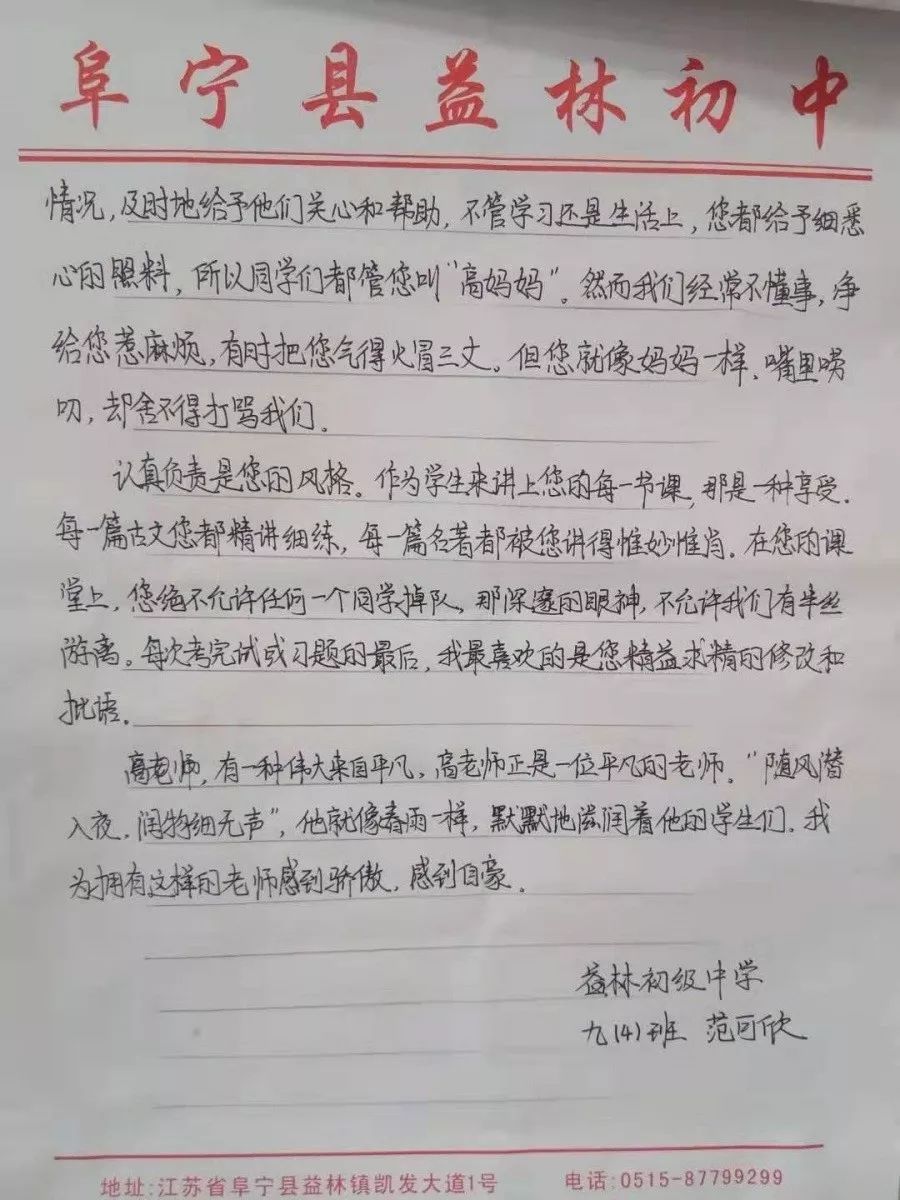 阜宁县益林初中
情况，及时地给予他们关心和帮助，不管学习还是生活上，您都给予细悉
心的照料，所以同学们都管您叫“高妈妈”。然而我们经常不懂事，净
给您惹麻烦，有时把您气得火冒三丈。但您就像妈妈一样，嘴里唠
叨，却舍不得打骂我们。
认真负责是您的风格。作为学生来讲上您的每一节课，那是一种享受。
每一篇古文您都精讲细练，每一篇名著都被您讲得惟妙惟肖。在您的课
堂上，您绝不允许任何一个同学掉队，那深邃的眼神，不允许我们有半丝
游离。每次考完试或习题的最后，我最喜欢的是您精益求精的修改和
批语。
高老师，有一种伟大来自平凡，高老师正是一位平凡的老师。“随风潜
入夜，润物细无声”，他就像春雨一样，默默地滋润着他的学生们。我
为拥有这样的老师感到骄傲，感到自豪。
益林初级中学
九(4)班 范可欣
地址:江苏省阜宁县益林镇凯发大道1号 电话:0515-87799299